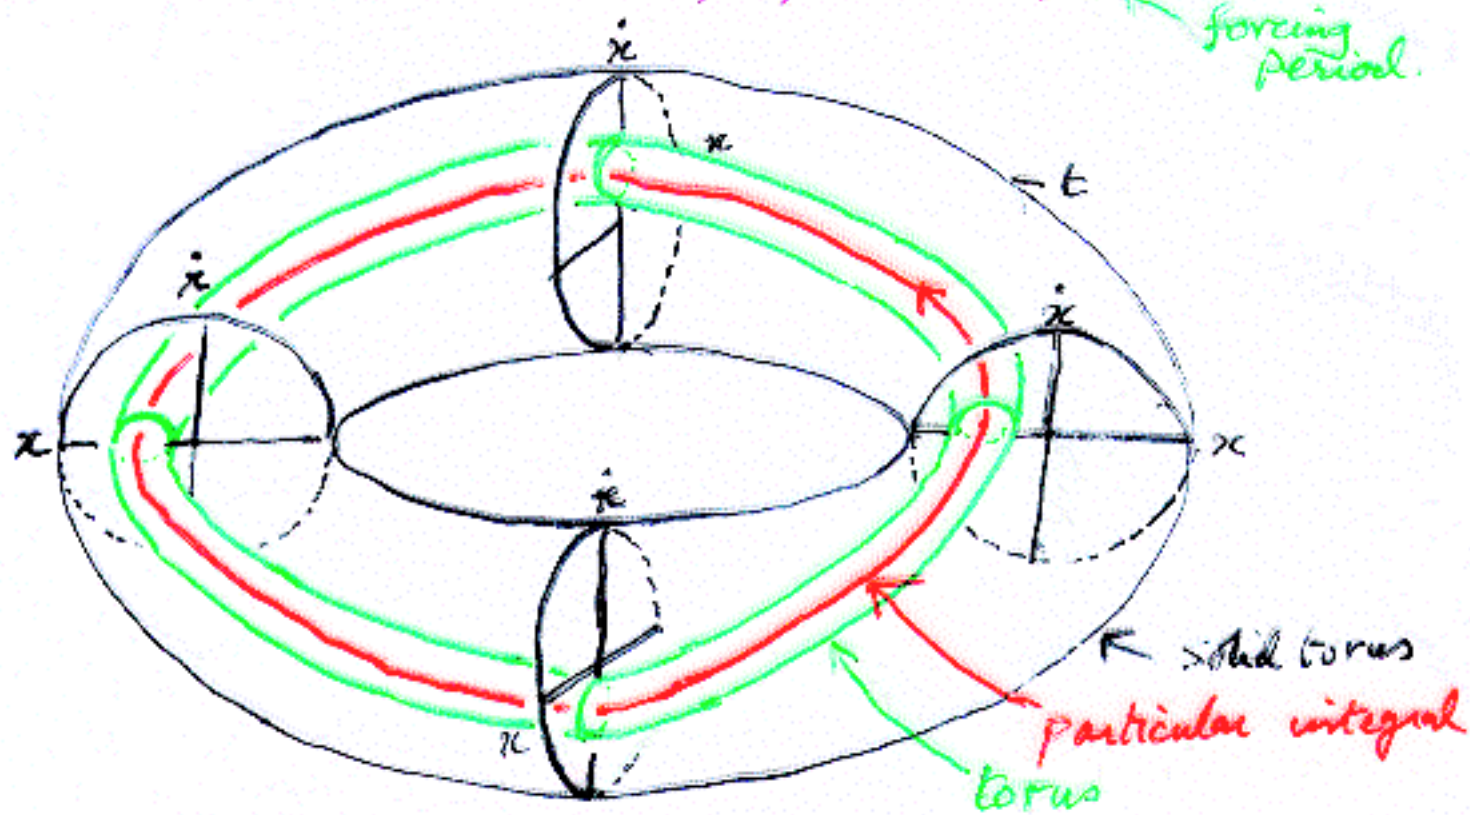 forcing
period.
ẋ
x
t
ẋ
ẋ
x
x
ẋ
solid torus
x
particular integral
torus